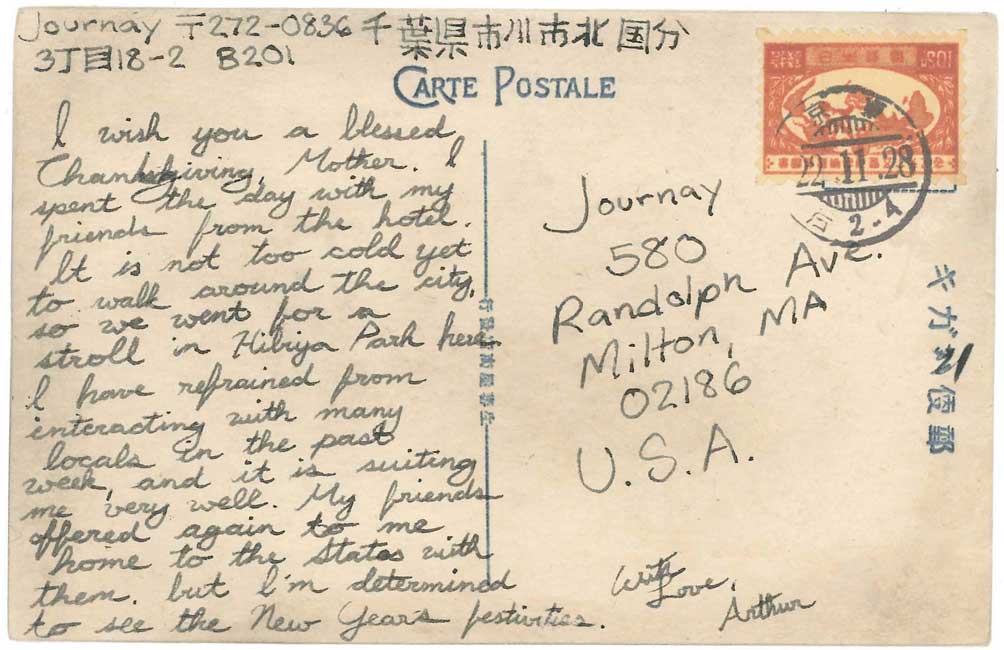 Journay 〒272-0836 千葉県市川市北国分
3丁目18-2 B201
CARTE POSTALE
I wish you a blessed
Thanksgiving, Mother. I
spent the day with my
friends from the hotel.
It is not too cold yet
to walk around the city,
so we went for a
stroll in Hibiya Park here.
I have refrained from
interacting with many
locals in the past
week, and it is suiting
me very well. My friends
offered again to me
home to the States with
them, but I'm determined
to see the New Year's festivities.
With
Love,
Arthur
Journay
580
Randolph Ave.
Milton, MA
02186
U.S.A.
22.11.28
2-4
キガハ便郵